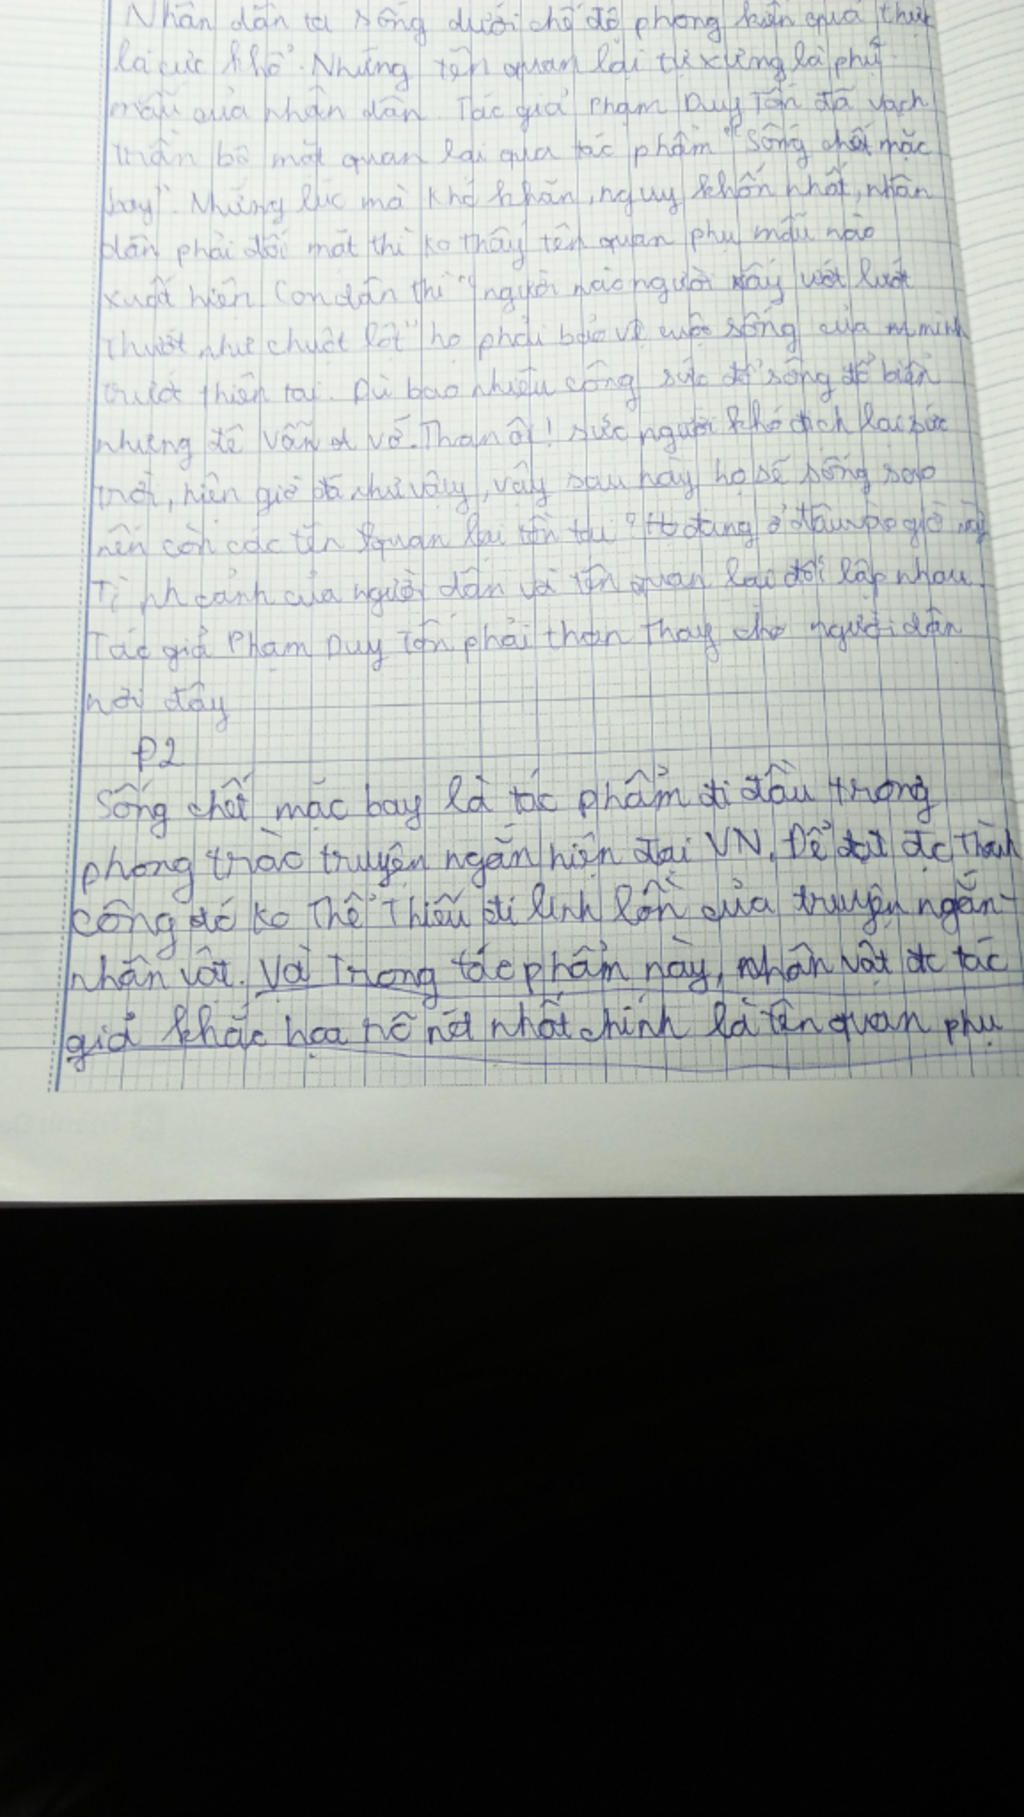 Nhân dân ta sống dưới chế độ phong kiến quả thực
là cực khổ. Những tên quan lại tự xưng là phụ
mẫu của nhân dân Tác giả Phạm Duy Tốn đã vạch
trần bộ mặt quan lại qua tác phẩm "Sống chết mặc
bay". Những lúc mà khó khăn, nguy khốn nhất, nhân
dân phải đối mặt thì ko thấy tên quan phụ mẫu nào
xuất hiện Con dân thì "người nào người nấy ướt lướt
thướt như chuột lột" họ phải bảo vệ cuộc sống của mình
trước thiên tai. Dù bao nhiêu công sức đổ sông đổ biển
nhưng đê vẫn vỡ. Than ôi! sức người khó địch lại sức
trời, hiện giờ đã như vậy, vậy sau này họ sẽ sống sao
nên còn các tên quan lại tồn tại ? Họ đang ở đâu vào giờ này
Tình cảnh của người dân và tên quan lại đối lập nhau.
Tác giả Phạm Duy Tốn phải than thay cho người dân
nơi đây
P2
Sống chết mặc bay là tác phẩm đi đầu trong
phong trào truyện ngắn hiện đại VN. Để đạt đc thành
công đó ko thể thiếu đi linh hồn của truyện ngắn-
nhân vật. Và trong tác phẩm này, nhân vật đc tác
giả khắc họa rõ nét nhất chính là tên quan phụ